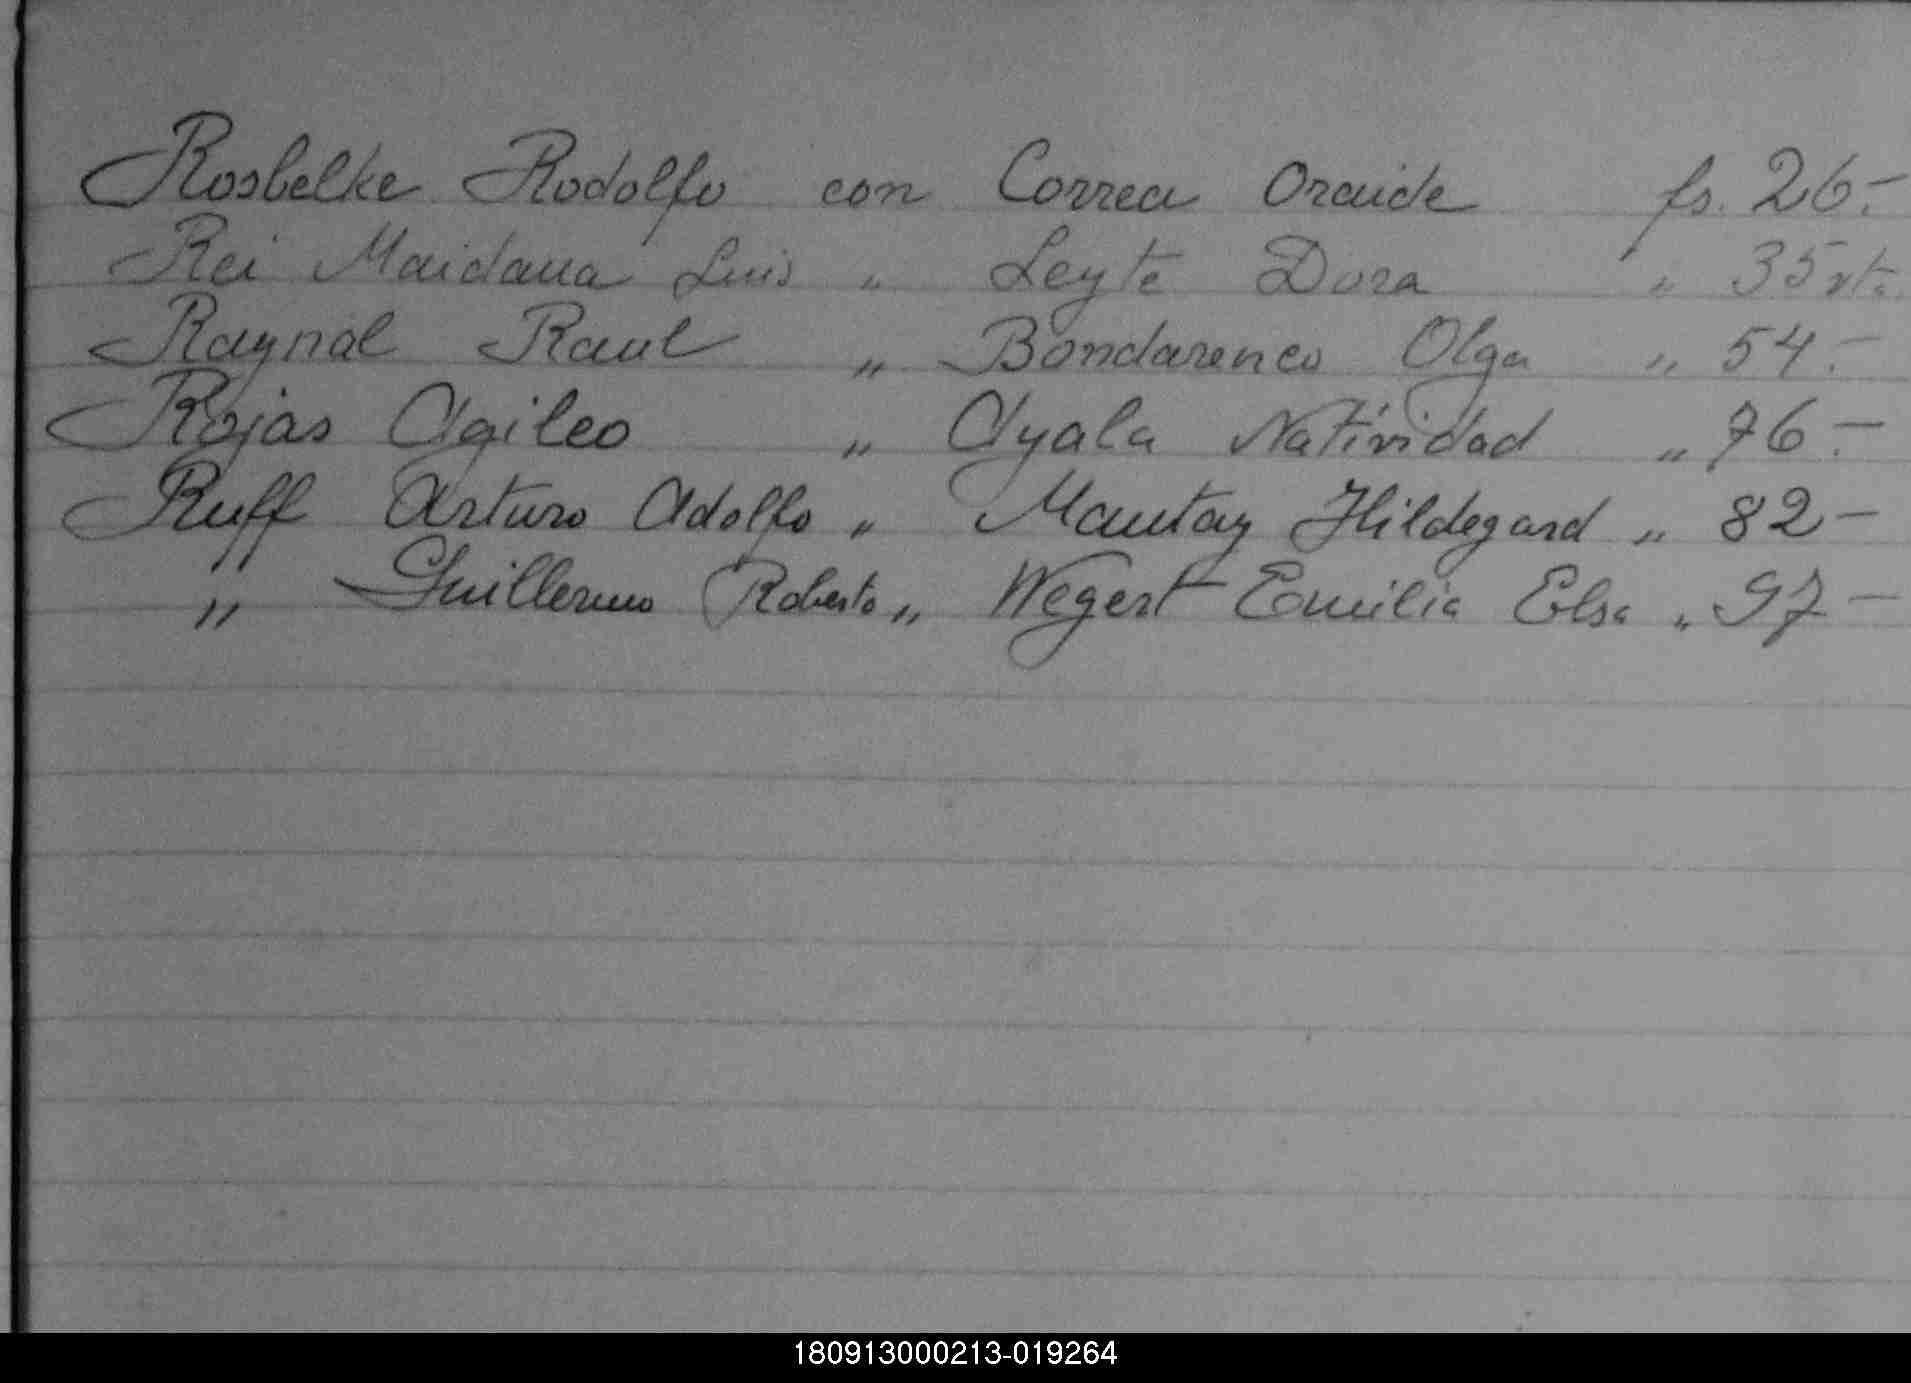 Rosbelke Rodolfo con Correa Oraide fs. 26.-
Rei Maidana Luis " Leyte Dora " 35 vta.
Raynal Raul " Bondarenco Olga " 54.-
Rojas Agileo " Ayala Natividad " 76.-
Ruff Arturo Adolfo " Mautay Hildegard " 82-
" Guillermo Roberto " Wegert Emilia Elsa " 97-
180913000213-019264